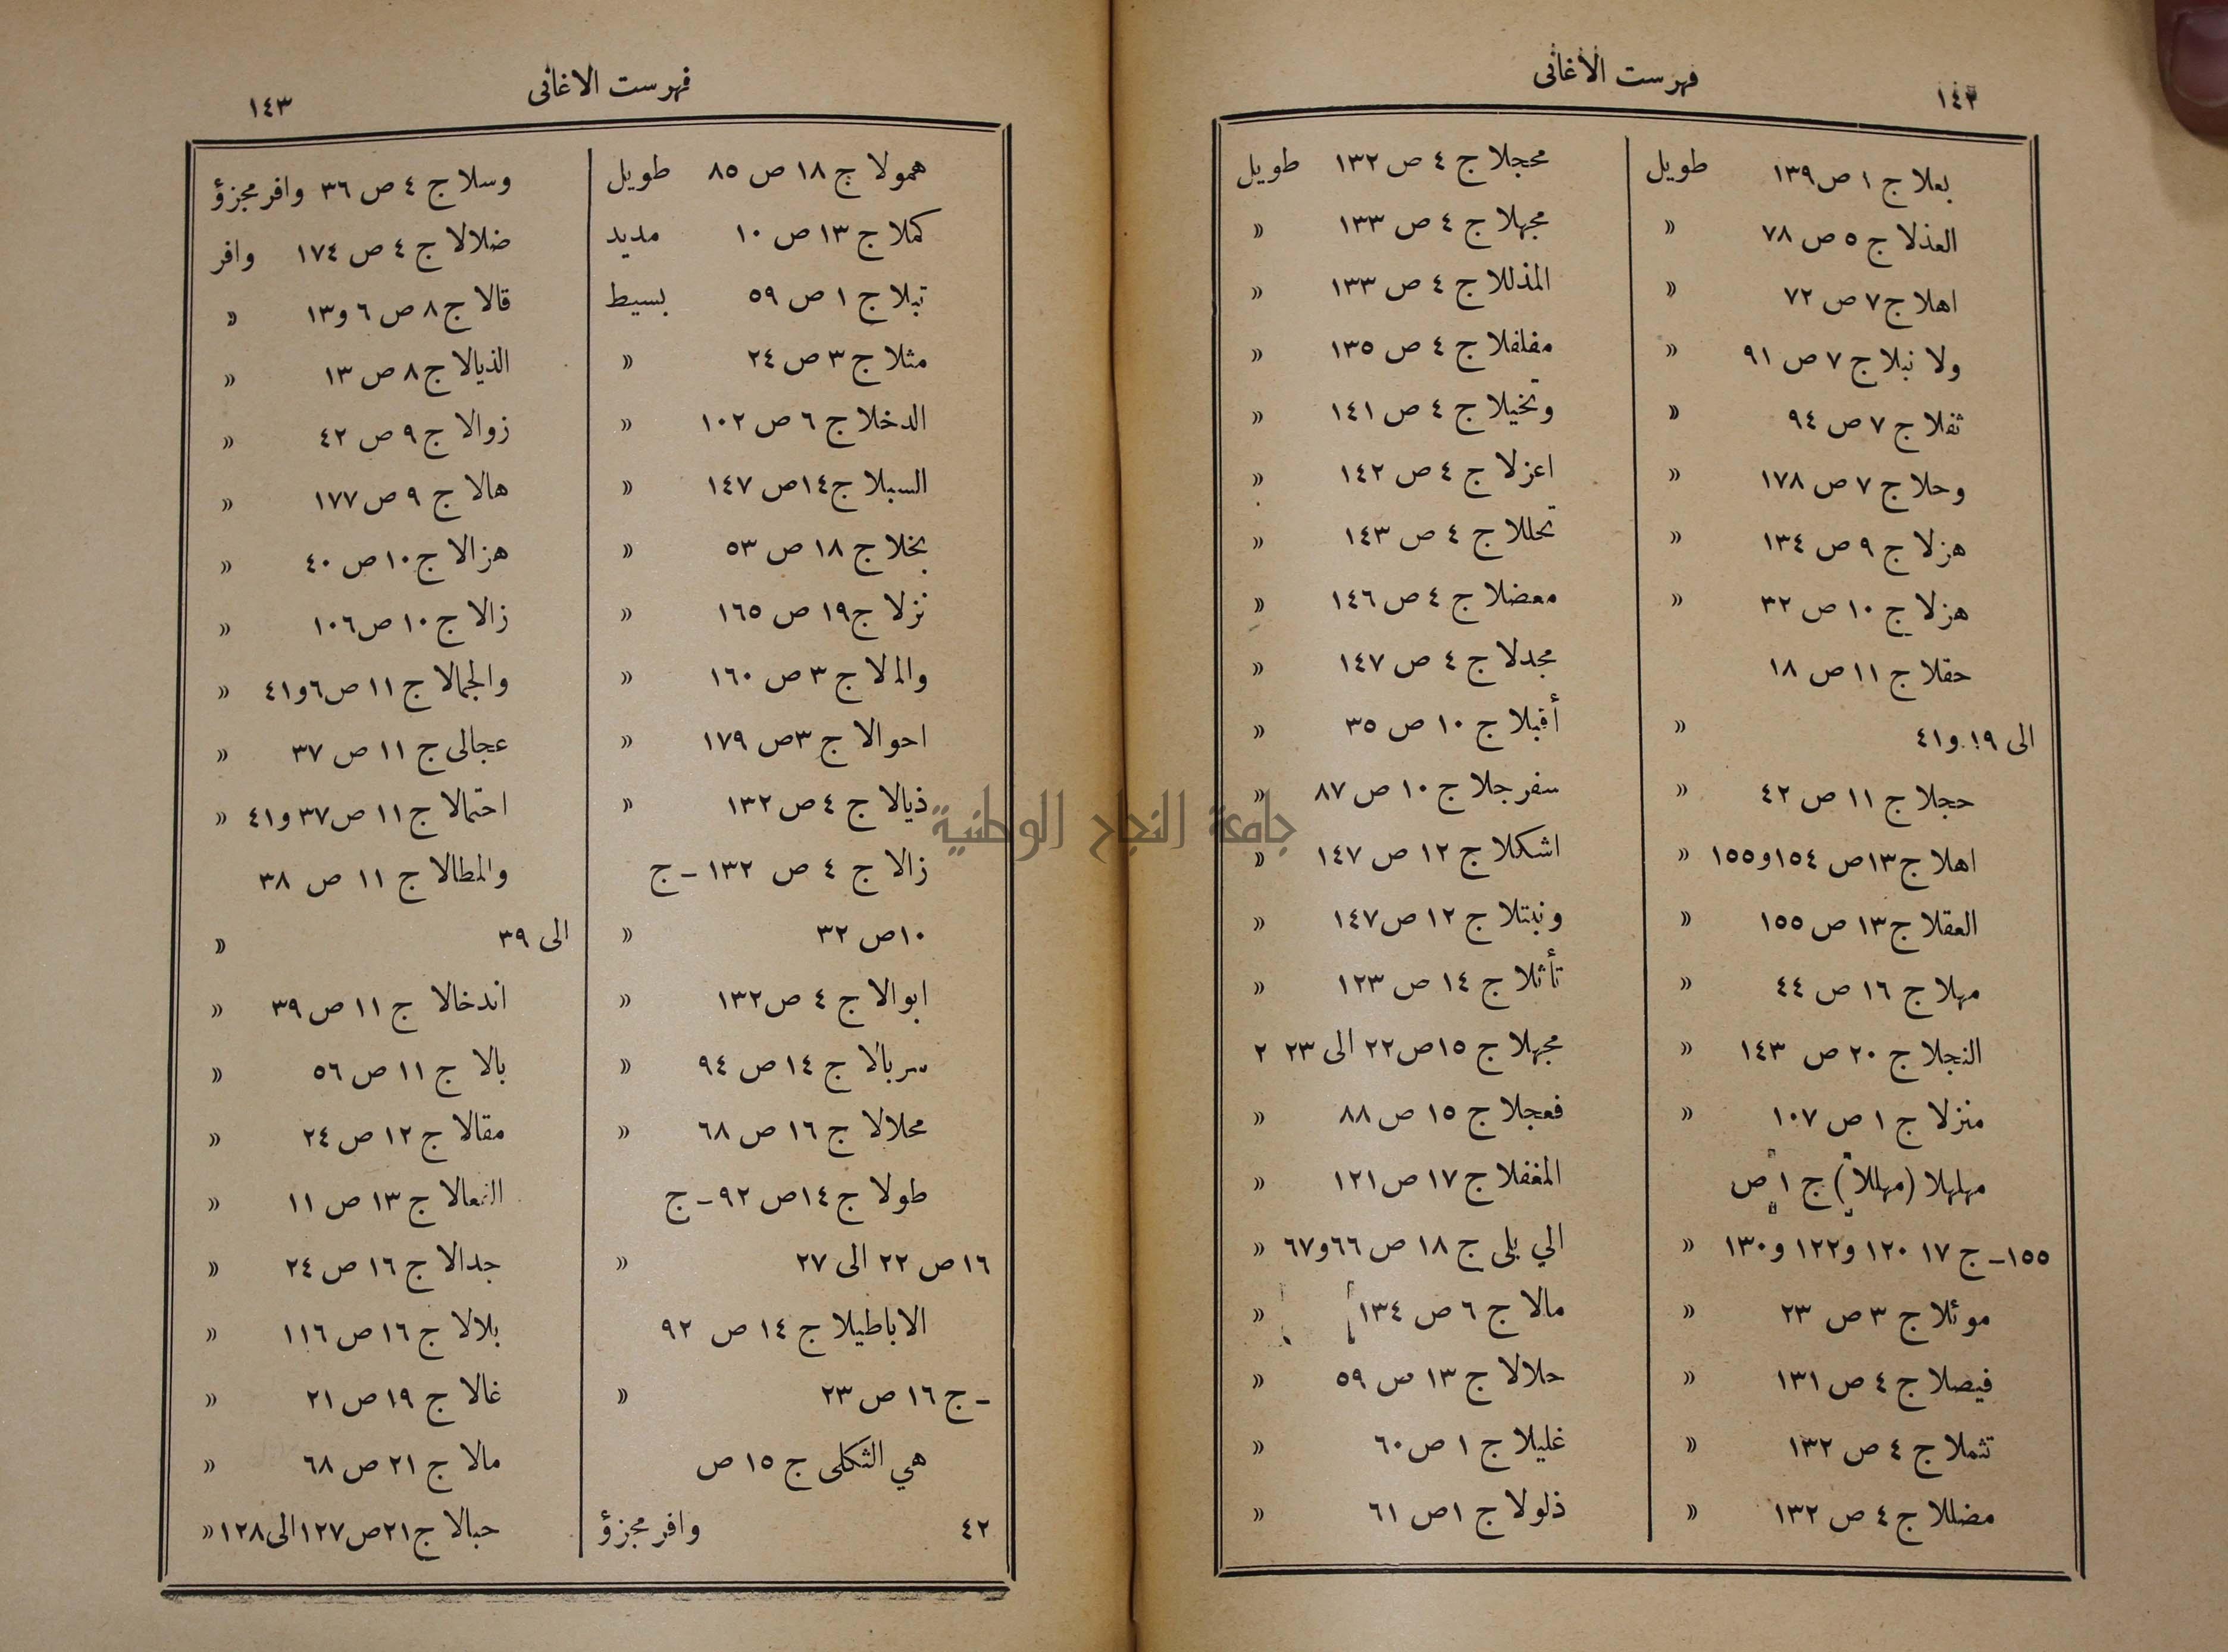 ١٤٢
فهرست الأغانى
بعلا ج ١ ص ١٣٩ طويل
العذلا ج ٥ ص ٧٨ «
اهلا ج ٧ ص ٧٢ «
ولا نبلا ج ٧ ص ٩١ «
ثفلا ج ٧ ص ٩٤ «
وحلا ج ٧ ص ١٧٨ «
هزلا ج ٩ ص ١٣٤ «
هزلا ج ١٠ ص ٣٢ «
حقلا ج ١١ ص ١٨
الى ١٩ و٤١ «
حجلا ج ١١ ص ٤٢ «
اهلا ج ١٣ ص ١٥٤ و١٥٥ «
العقلا ج ١٣ ص ١٥٥ «
مهلا ج ١٦ ص ٤٤ «
النجلا ج ٢٠ ص ١٤٣ «
منزلا ج ١ ص ١٠٧ «
مهلهلا (مهللا) ج ١ ص
١٥٥ـ ج ١٧ ١٢٠ و١٢٢ و١٣٠ «
موئلا ج ٣ ص ٢٣ «
فيصلا ج ٤ ص ١٣١ «
تثملا ج ٤ ص ١٣٢ «
مضللا ج ٤ ص ١٣٢ «
محجلا ج ٤ ص ١٣٢ طويل
مجهلا ج ٤ ص ١٣٣ «
المذللا ج ٤ ص ١٣٣ «
مفلفلا ج ٤ ص ١٣٥ «
وتخيلا ج ٤ ص ١٤١ «
اعزلا ج ٤ ص ١٤٢ «
تحللا ج ٤ ص ١٤٣ «
معضلا ج ٤ ص ١٤٦ «
مجدلا ج ٤ ص ١٤٧ «
أقبلا ج ١٠ ص ٣٥ «
سفرجلا ج ١٠ ص ٨٧ «
اشكلا ج ١٢ ص ١٤٧ «
ونبتلا ج ١٢ ص ١٤٧ «
تأثلا ج ١٤ ص ١٢٣ «
مجهلا ج ١٥ ص ٢٢ الى ٢٣ ٢
فعجلا ج ١٥ ص ٨٨ «
المغفلا ج ١٧ ص ١٢١ «
الي بلى ج ١٨ ص ٦٦ و٦٧ «
مالا ج ٦ ص ١٣٤ «
حلالا ج ١٣ ص ٥٩ «
غليلا ج ١ ص ٦٠ «
ذلولا ج ١ ص ٦١ «
فهرست الاغانى
١٤٣
همولا ج ١٨ ص ٨٥ طويل
كملا ج ١٣ ص ١٠ مديد
تبلا ج ١ ص ٥٩ بسيط
مثلا ج ٣ ص ٢٤ «
الدخلا ج ٦ ص ١٠٢ «
السبلا ج ١٤ ص ١٤٧ «
بخلا ج ١٨ ص ٥٣ «
نزلا ج ١٩ ص ١٦٥ «
والملا ج ٣ ص ١٦٠ «
احوالا ج ٣ ص ١٧٩ «
ذيالا ج ٤ ص ١٣٢ «
زالا ج ٤ ص ١٣٢ ـ ج
١٠ ص ٣٢ «
ابوالا ج ٤ ص ١٣٢ «
سربالا ج ١٤ ص ٩٤ «
محلالا ج ١٦ ص ٦٨ «
طولا ج ١٤ ص ٩٢ ـ ج
١٦ ص ٢٢ الى ٢٧ «
الاباطيلا ج ١٤ ص ٩٢
ـ ج ١٦ ص ٢٣ «
هي الثكلى ج ١٥ ص
٤٢ وافر مجزؤ
وسلا ج ٤ ص ٣٦ وافر مجزؤ
ضلالا ج ٤ ص ١٧٤ وافر
قالا ج ٨ ص ٦ و١٣ «
الذيالا ج ٨ ص ١٣ «
زوالا ج ٩ ص ٤٢ «
هالا ج ٩ ص ١٧٧ «
هزالا ج ١٠ ص ٤٠ «
زالا ج ١٠ ص ١٠٦ «
والجمالا ج ١١ ص ٦ و٤١ «
عجالى ج ١١ ص ٣٧ «
احتمالا ج ١١ ص ٣٧ و٤١ «
والمطالا ج ١١ ص ٣٨
الى ٣٩ «
اندخالا ج ١١ ص ٣٩ «
بالا ج ١١ ص ٥٦ «
مقالا ج ١٢ ص ٢٤ «
النعالا ج ١٣ ص ١١ «
جدالا ج ١٦ ص ٢٤ «
بلالا ج ١٦ ص ١١٦ «
غالا ج ١٩ ص ٢١ «
مالا ج ٢١ ص ٦٨ «
حبالا ج ٢١ ص ١٢٧ الى ١٢٨ «
جامعة النجاح الوطنية